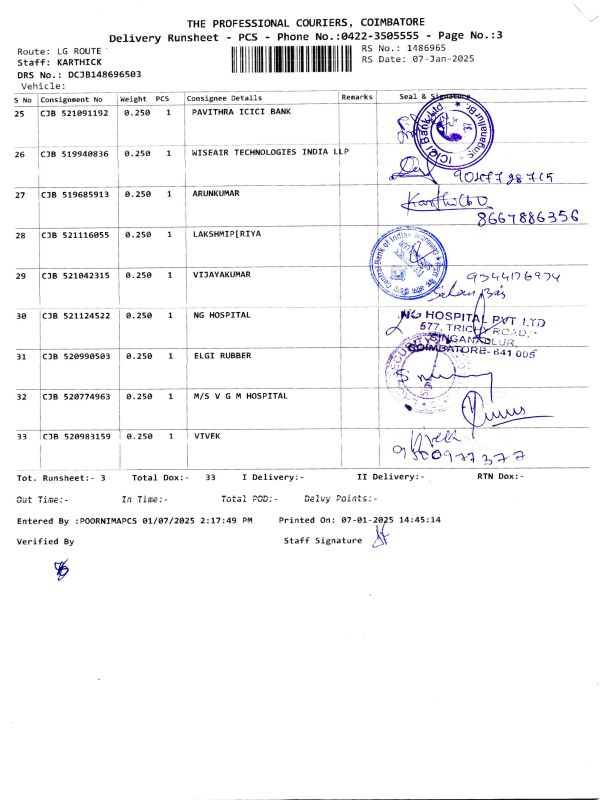 THE PROFESSIONAL COURIERS, COIMBATORE
Delivery Runsheet - PCS - Phone No.:0422-3505555 - Page No.:3
Route: LG ROUTE
Staff: KARTHICK
DRS No.: DCJB148696503
Vehicle:
RS No.: 1486965
RS Date: 07-Jan-2025
S No Consignment No Weight PCS Consignee Details Remarks Seal & Signature
25 CJB 521091192 0.250 1 PAVITHRA ICICI BANK
ICICI Bank Ltd. Singanallur Br.
26 CJB 519940836 0.250 1 WISEAIR TECHNOLOGIES INDIA LLP
27 CJB 519685913 0.250 1 ARUNKUMAR
8667886356
28 CJB 521116055 0.250 1 LAKSHMIP[RIYA
Central Bank of India
29 CJB 521042315 0.250 1 VIJAYAKUMAR
30 CJB 521124522 0.250 1 NG HOSPITAL
NG HOSPITAL PVT LTD
577, TRICHY ROAD,
SINGANALLUR,
COIMBATORE- 641 005
31 CJB 520990503 0.250 1 ELGI RUBBER
SECURITY
32 CJB 520774963 0.250 1 M/S V G M HOSPITAL
33 CJB 520983159 0.250 1 VIVEK
Vivek
9500977377
Tot. Runsheet:- 3 Total Dox:- 33 I Delivery:- II Delivery:- RTN Dox:-
Out Time:- In Time:- Total POD:- Delvy Points:-
Entered By :POORNIMAPCS 01/07/2025 2:17:49 PM Printed On: 07-01-2025 14:45:14
Verified By Staff Signature